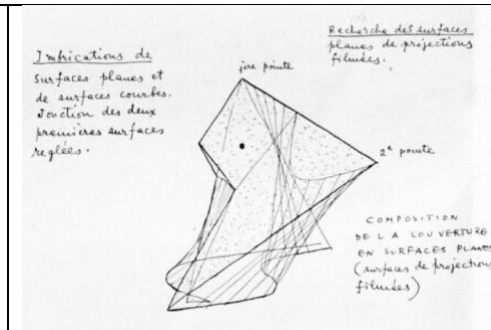 Imbrications de
surfaces planes et
de surfaces courbes.
Jonction des deux
premières surfaces
reglées.
1ère pointe
Recherche des surfaces
planes de projections
filmées.
2e pointe
COMPOSITION
DE LA COUVERTURE
EN SURFACES PLANES
(surfaces de projections
filmées)